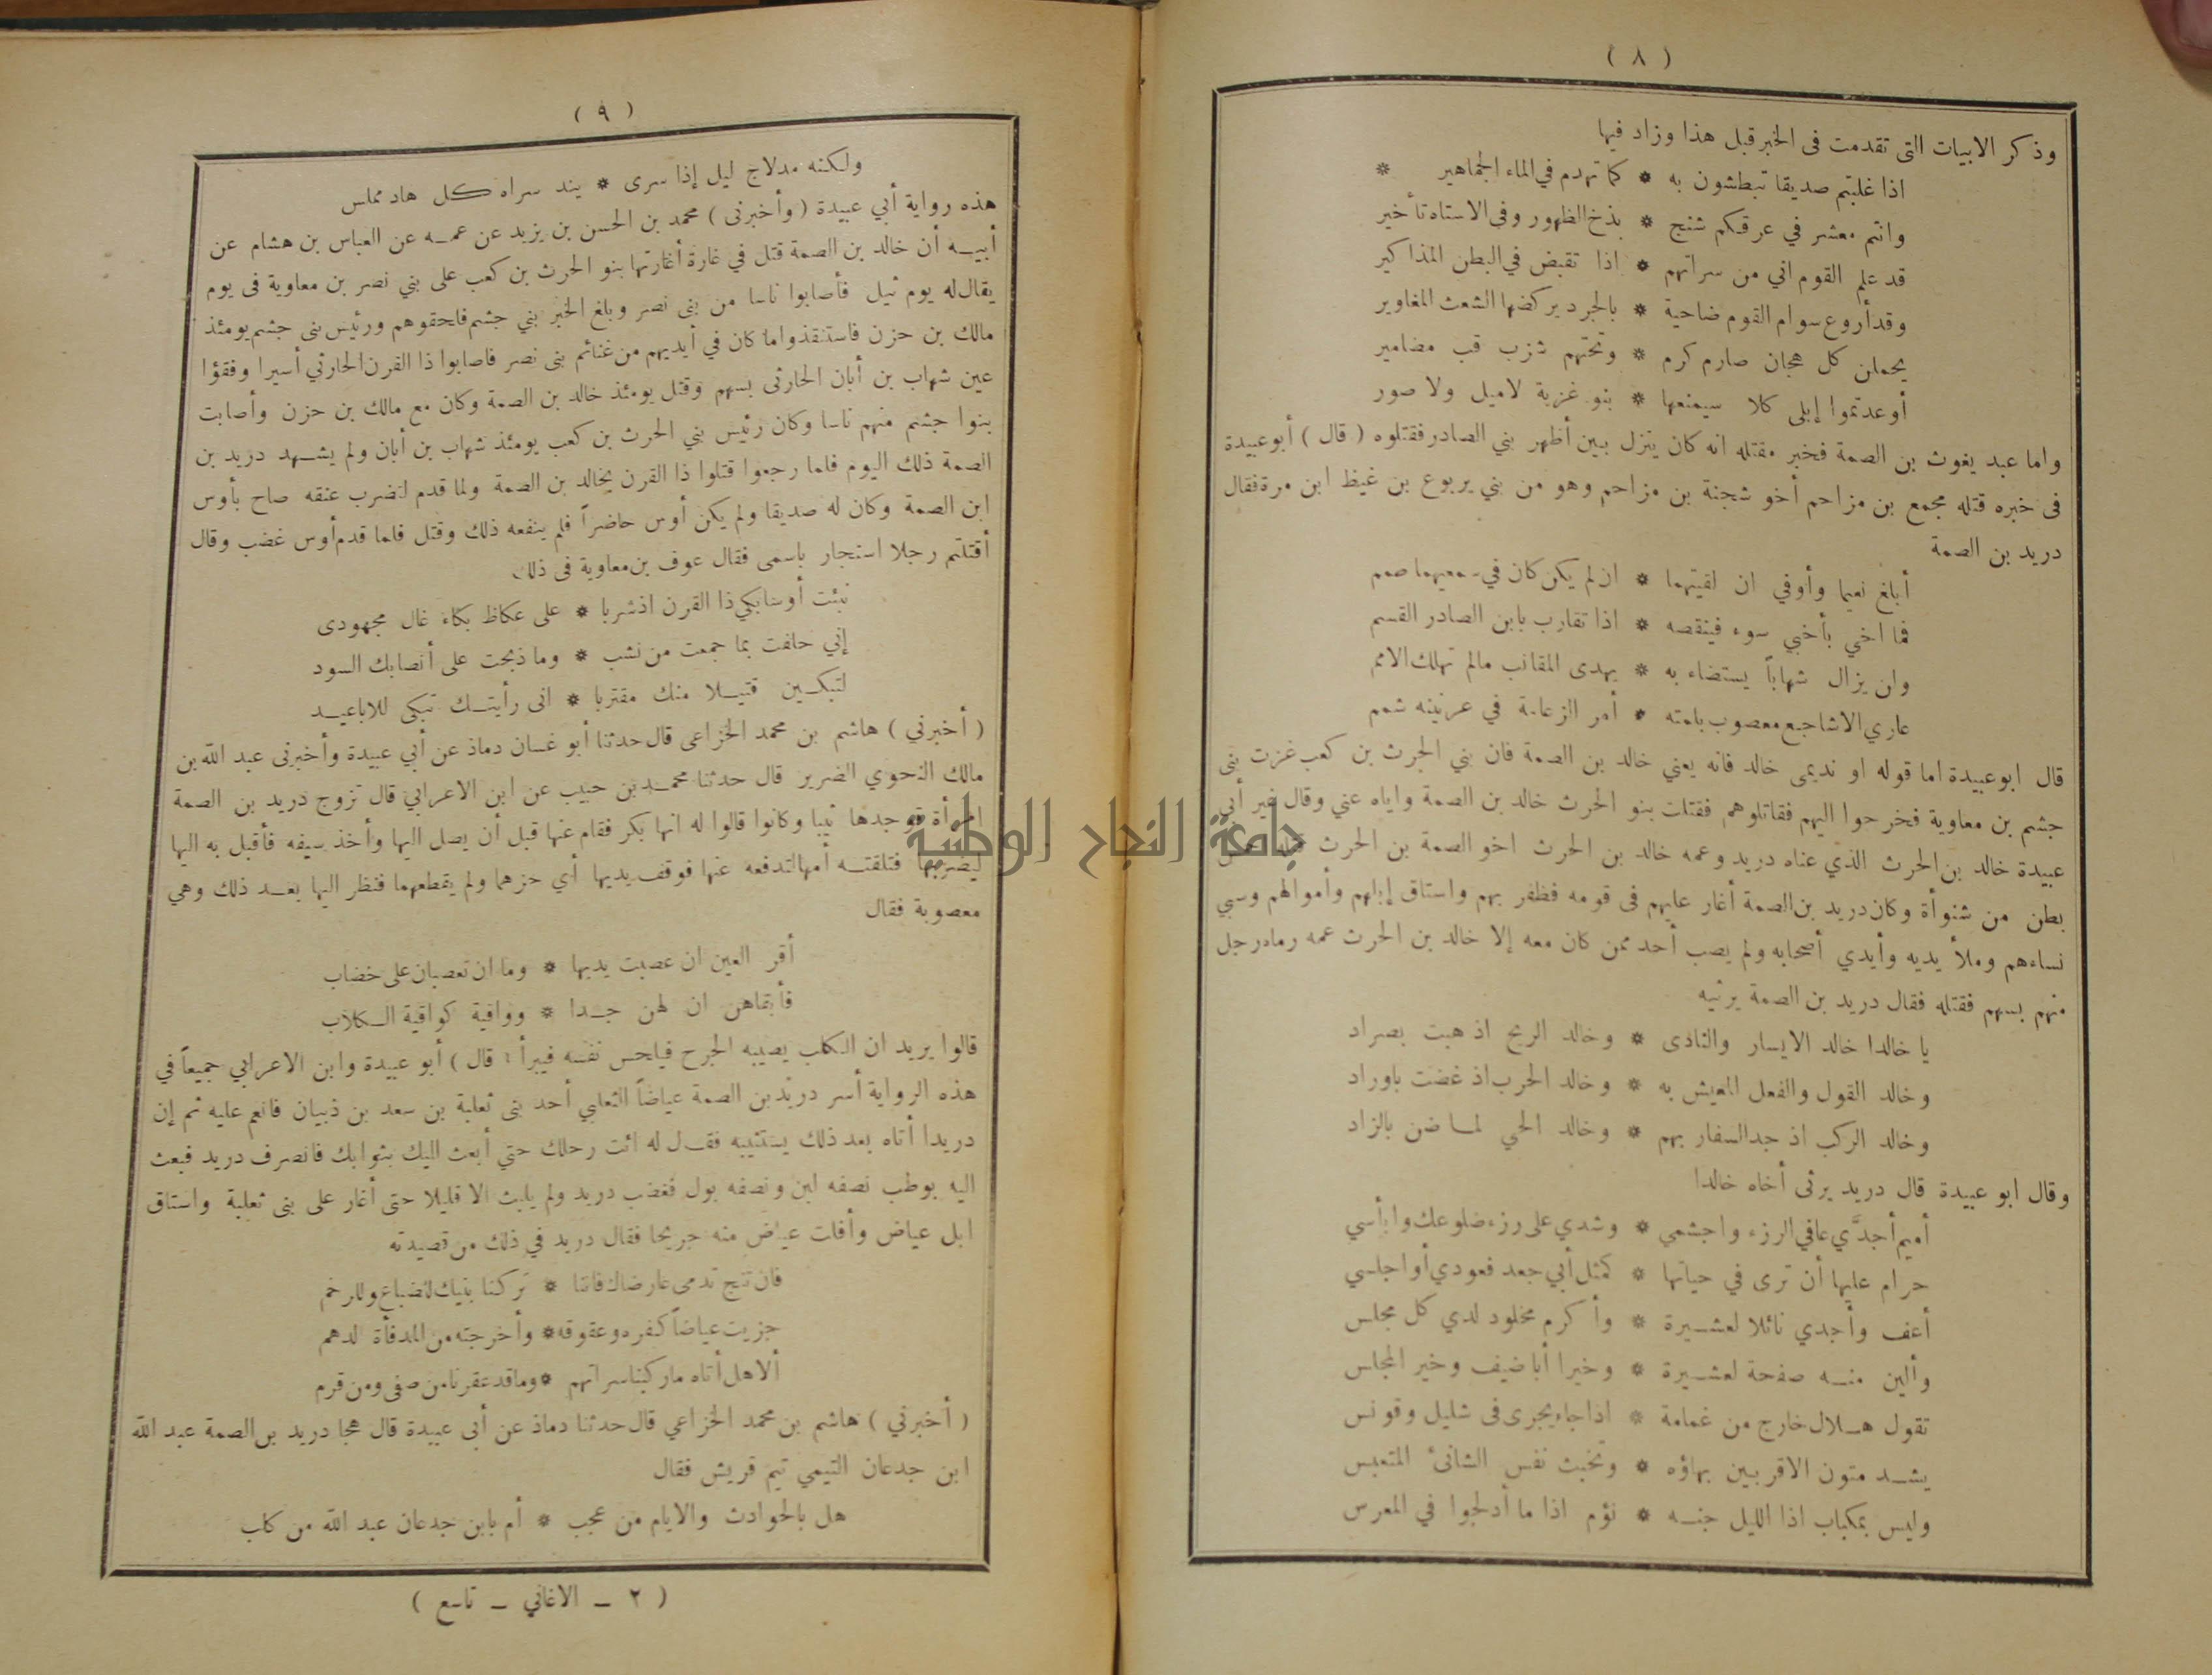 ( ٨ )
وذكر الابيات التى تقدمت فى الخبر قبل هذا وزاد فيها
اذا غلبتم صديقا تبطشون به * كما تهدم في الماء الجماهير *
وانتم معشر في عرقكم شنج * بذخ الظهور وفى الاستاه تأخير
قد علم القوم اني من سراتهم * اذا تقبض في البطن المذاكير
وقد أروع سوام القوم ضاحية * بالجرد يركضها الشعث المغاوير
يحملن كل هجان صارم كرم * وتحتهم شزب قب مضامير
أوعدتموا إبلى كلا سيمنعها * بنو غزية لاميل ولا صور
واما عبد يغوث بن الصمة فخبر مقتله انه كان ينزل بين أظهر بني الصادر فقتلوه ( قال ) أبو عبيدة
فى خبره قتله مجمع بن مزاحم أخو شجنة بن مزاحم وهو من بني يربوع بن غيظ ابن مرة فقال
دريد بن الصمة
أبلغ نعيما وأوفي ان لقيتهما * ان لم يكن كان في سمعيهما صمم
فما اخي بأخي سوء فينقصه * اذا تقارب بابن الصادر القسم
وان يزال شهاباً يستضاء به * يهدى المقانب مالم تهلك الامم
عاري الاشاجع معصوب بلمته * أمر الزعامة في عرنينه شمم
قال ابو عبيدة اما قوله او نديمى خالد فانه يعني خالد بن الصمة فان بني الحرث بن كعب غزت بنى
جشم بن معاوية فخرجوا اليهم فقاتلوهم فقتلت بنو الحرث خالد بن الصمة واياه عني وقال غير أبي
عبيدة خالد بن الحرث الذي عناه دريد وعمه خالد بن الحرث اخو الصمة بن الحرث
بطن من شنوأة وكان دريد بن الصمة أغار عليهم فى قومه فظفر بهم واستاق إبلهم وأموالهم وسبي
نساءهم وملأ يديه وأيدي أصحابه ولم يصب أحد ممن كان معه إلا خالد بن الحرث عمه رماه رجل
منهم بسهم فقتله فقال دريد بن الصمة يرثيه
يا خالدا خالد الايسار والنادى * وخالد الريح اذ هبت بصراد
وخالد القول والفعل المعيش به * وخالد الحرب اذ غضت باوراد
وخالد الركب اذ جد السفار بهم * وخالد الحي لما ضن بالزاد
وقال ابو عبيدة قال دريد يرثى أخاه خالدا
أميم أجدّي عافي الرزء واجشمي * وشدي على رزء ضلوعك وابأسي
حرام عليها أن ترى في حياتها * كمثل أبي جعد فعودي أو اجلسي
أعف وأجدي نائلا لعشيرة * وأكرم مخلود لدي كل مجلس
وألين منه صفحة لعشيرة * وخيرا أبا ضيف وخير المجلس
تقول هلال خارج من غمامة * اذا جاء يجرى فى شليل وقونس
يشد متون الاقربين بهاؤه * وتخبث نفس الشانئ المتعبس
وليس بمكباب اذا الليل جنه * نؤم اذا ما أدلجوا في المعرس
( ٩ )
ولكنه مدلاج ليل إذا سرى * يند سراه كل هاد مملس
هذه رواية أبي عبيدة ( وأخبرنى ) محمد بن الحسن بن يزيد عن عمه عن العباس بن هشام عن
أبيه أن خالد بن الصمة قتل في غارة أغارتها بنو الحرث بن كعب على بني نصر بن معاوية فى يوم
يقال له يوم ثيل فأصابوا ناسا من بنى نصر وبلغ الخبر بني جشم فلحقوهم ورئيس بنى جشم يومئذ
مالك بن حزن فاستنقذوا ما كان في أيديهم من غنائم بنى نصر فاصابوا ذا القرن الحارثي أسيرا وفقؤا
عين شهاب بن أبان الحارثى بسهم وقتل يومئذ خالد بن الصمة وكان مع مالك بن حزن وأصابت
بنوا جشم منهم ناسا وكان رئيس بني الحرث بن كعب يومئذ شهاب بن أبان ولم يشهد دريد بن
الصمة ذلك اليوم فلما رجعوا قتلوا ذا القرن بخالد بن الصمة ولما قدم لتضرب عنقه صاح بأوس
ابن الصمة وكان له صديقا ولم يكن أوس حاضراً فلم ينفعه ذلك وقتل فلما قدم أوس غضب وقال
أقتلتم رجلا استجار باسمى فقال عوف بن معاوية فى ذلك
نبئت أوسا بكي ذا القرن اذ شربا * على عكاظ بكاء غال مجهودى
إني حلفت بما جمعت من نشب * وما ذبحت على أنصابك السود
لتبكين قتيلا منك مقتربا * انى رأيتك تبكى للاباعيد
( أخبرني ) هاشم بن محمد الخزاعى قال حدثنا أبو غسان دماذ عن أبي عبيدة وأخبرنى عبد الله بن
مالك النحوي الضرير قال حدثنا محمد بن حبيب عن ابن الاعرابي قال تزوج دريد بن الصمة
امرأة فوجدها ثيبا وكانوا قالوا له انها بكر فقام عنها قبل أن يصل اليها وأخذ سيفه فأقبل به اليها
ليضربها فتلقته أمها لتدفعه عنها فوقف يديها أي حزهما ولم يقطعهما فنظر اليها بعد ذلك وهي
معصوبة فقال
أقر العين ان عصبت يديها * وما ان تعصبان على خضاب
فأبقاهن ان لهن جدا * وواقية كواقية الكلاب
قالوا يريد ان الكلب يصيبه الجرح فيلحس نفسه فيبرأ ؛ قال ) أبو عبيدة وابن الاعرابي جميعاً في
هذه الرواية أسر دريد بن الصمة عياضاً الثعلبي أحد بنى ثعلبة بن سعد بن ذبيان فانعم عليه ثم إن
دريدا أتاه بعد ذلك يستثيبه فقال له ائت رحلك حتي أبعث اليك بثوابك فانصرف دريد فبعث
اليه بوطب نصفه لبن ونصفه بول فغضب دريد ولم يلبث الا قليلا حتى أغار على بنى ثعلبة واستاق
ابل عياض وأفلت عياض منه جريحا فقال دريد في ذلك من قصيدته
فان تنج تدمى عارضاك فاننا * تركنا بنيك للضباع وللرخم
جزيت عياضاً كفره وعقوقه * وأخرجته من المدفأة الدهم
ألا هل أتاه ما ركبنا سراتهم * وما قد عقرنا من صفى ومن قرم
( أخبرني ) هاشم بن محمد الخزاعي قال حدثنا دماذ عن أبى عبيدة قال هجا دريد بن الصمة عبد الله
ابن جدعان التيمي تيم قريش فقال
هل بالحوادث والايام من عجب * أم بابن جدعان عبد الله من كلب
( ٢ ـ الاغاني ـ تاسع )
جامعة النجاح الوطنية